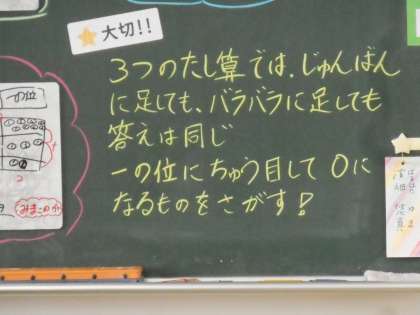 大切!!
3つのたし算では、じゅんばん
に足しても、バラバラに足しても
答えは同じ
一の位にちゅう目して0に
なるものをさがす!
の位